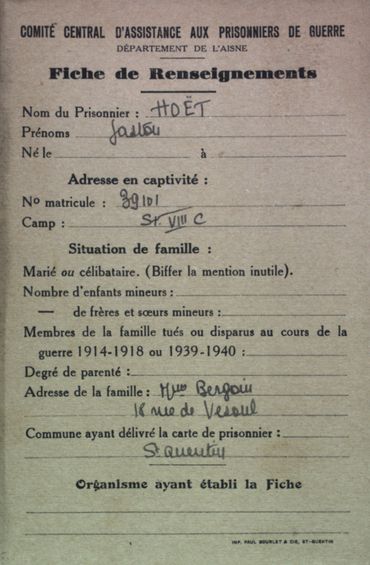 COMITÉ CENTRAL D'ASSISTANCE AUX PRISONNIERS DE GUERRE
DÉPARTEMENT DE L'AISNE
Fiche de Renseignements
Nom du Prisonnier : HOËT
Prénoms Gaston
Né le à
Adresse en captivité :
No matricule : 39101
Camp : St. VIII C
Situation de famille :
Marié ou célibataire. (Biffer la mention inutile).
Nombre d'enfants mineurs :
— de frères et sœurs mineurs :
Membres de la famille tués ou disparus au cours de la
guerre 1914-1918 ou 1939-1940 :
Degré de parenté :
Adresse de la famille : Mme
18 rue de Vesoul
Commune ayant délivré la carte de prisonnier :
St Quentin
Organisme ayant établi la Fiche
IMP. PAUL BOURLET & CIE, ST-QUENTIN